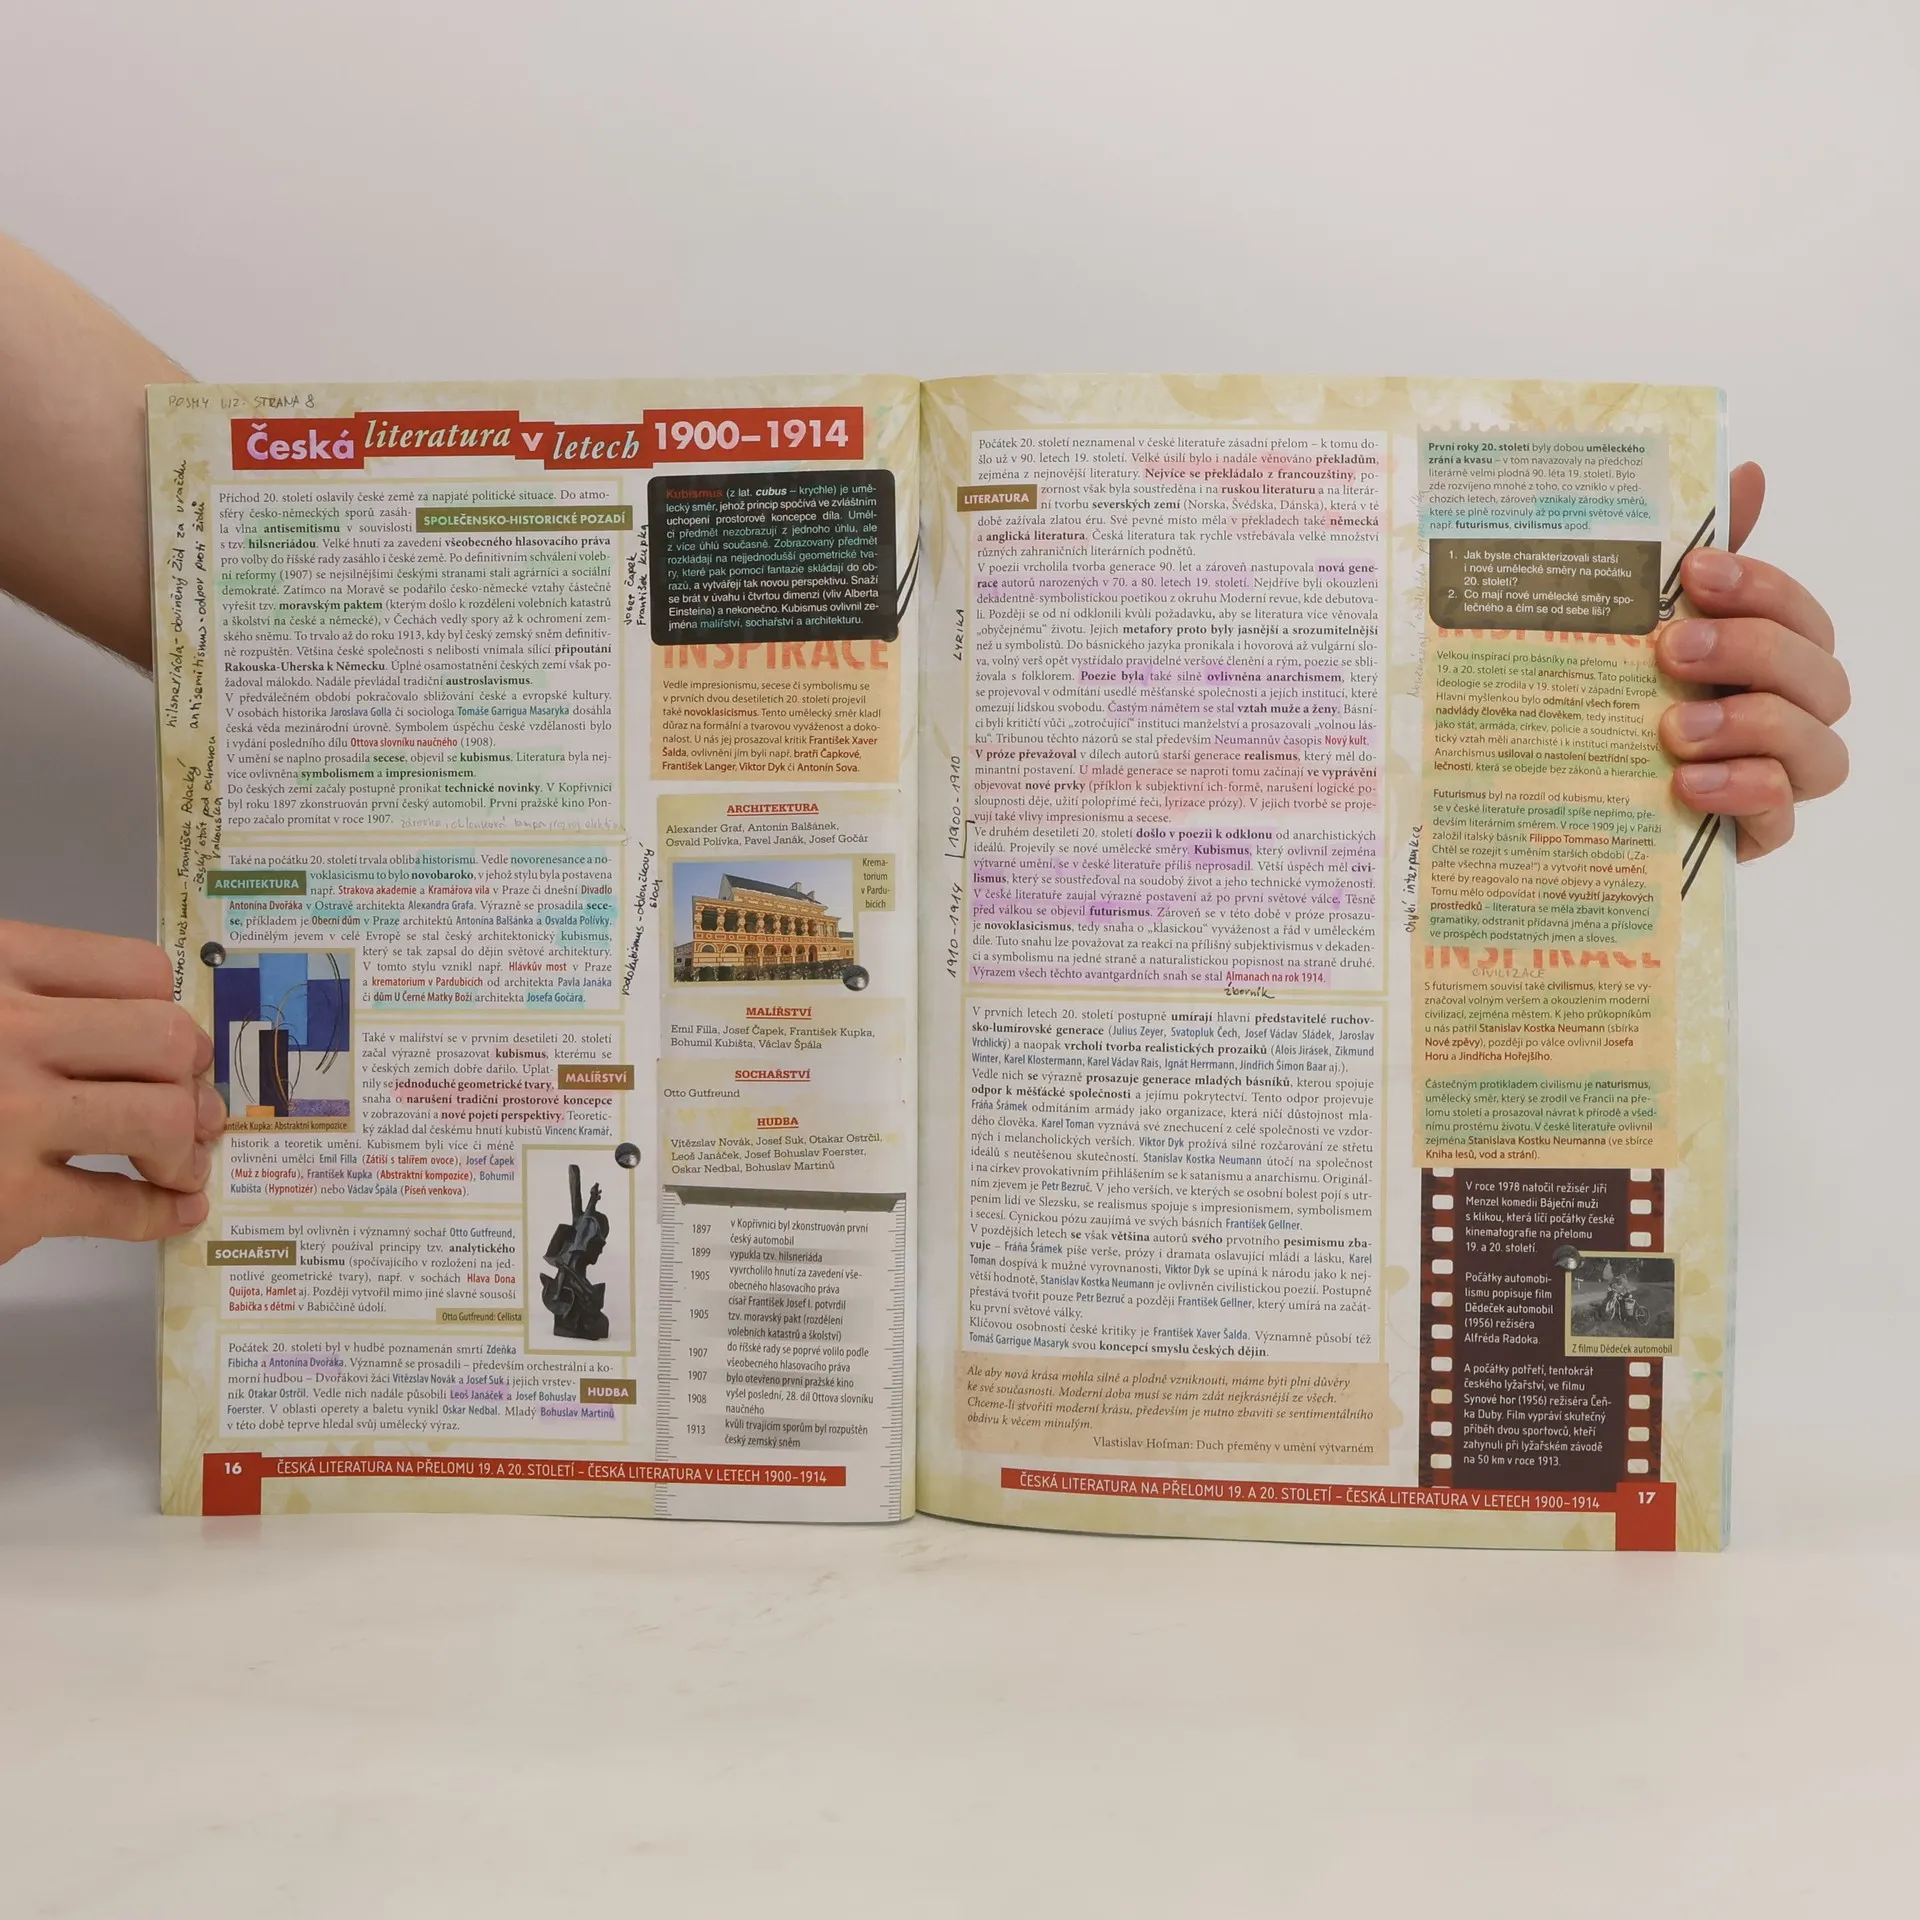 POSMY LIZ: STRANA 8
Česká literatura v letech 1900–1914
Příchod 20. století oslavily české země za napjaté politické situace. Do atmo-
sféry česko-německých sporů zasáh-
la vlna antisemitismu v souvislosti
s tzv. hilsneriádou. Velké hnutí za zavedení všeobecného hlasovacího práva
pro volby do říšské rady zasáhlo i české země. Po definitivním schválení voleb-
ní reformy (1907) se nejsilnějšími českými stranami stali agrárníci a sociální
demokraté. Zatímco na Moravě se podařilo česko-německé vztahy částečně
vyřešit tzv. moravským paktem (kterým došlo k rozdělení volebních katastrů
a školství na české a německé), v Čechách vedly spory až k ochromení zem-
ského sněmu. To trvalo až do roku 1913, kdy byl český zemský sněm definitiv-
ně rozpuštěn. Většina české společnosti s nelibostí vnímala sílící připoutání
Rakouska-Uherska k Německu. Úplné osamostatnění českých zemí však po-
žadoval málokdo. Nadále převládal tradiční austroslavismus.
V předválečném období pokračovalo sbližování české a evropské kultury.
V osobách historika Jaroslava Golla či sociologa Tomáše Garrigua Masaryka dosáhla
česká věda mezinárodní úrovně. Symbolem úspěchu české vzdělanosti bylo
i vydání posledního dílu Ottova slovníku naučného (1908).
V umění se naplno prosadila secese, objevil se kubismus. Literatura byla nej-
více ovlivněna symbolismem a impresionismem.
Do českých zemí začaly postupně pronikat technické novinky. V Kopřivnici
byl roku 1897 zkonstruován první český automobil. První pražské kino Pon-
repo začalo promítat v roce 1907.
SPOLEČENSKO-HISTORICKÉ POZADÍ
hilsneriáda - obviněný žid za vraždu
antisemitismus - odpor proti židů
austroslavismu - František Palacký
- český stát pod ochranou
rakouska
Josef Čapek
František Kupka
Také na počátku 20. století trvala obliba historismu. Vedle novorenesance a no-
voklasicismu to bylo novobaroko, v jehož stylu byla postavena
např. Strakova akademie a Kramářova vila v Praze či dnešní Divadlo
Antonína Dvořáka v Ostravě architekta Alexandra Grafa. Výrazně se prosadila sece-
se, příkladem je Obecní dům v Praze architektů Antonína Balšánka a Osvalda Polívky.
Ojedinělým jevem v celé Evropě se stal český architektonický kubismus,
který se tak zapsal do dějin světové architektury.
V tomto stylu vznikl např. Hlávkův most v Praze
a krematorium v Pardubicích od architekta Pavla Janáka
či dům U Černé Matky Boží architekta Josefa Gočára.
ARCHITEKTURA
rondokubismus - obloučkový
sloh
Také v malířství se v prvním desetiletí 20. století
začal výrazně prosazovat kubismus, kterému se
v českých zemích dobře dařilo. Uplat-
nily se jednoduché geometrické tvary,
snaha o narušení tradiční prostorové koncepce
v zobrazování a nové pojetí perspektivy. Teoretic-
ký základ dal českému hnutí kubistů Vincenc Kramář,
historik a teoretik umění. Kubismem byli více či méně
ovlivněni umělci Emil Filla (Zátiší s talířem ovoce), Josef Čapek
(Muž z biografu), František Kupka (Abstraktní kompozice), Bohumil
Kubišta (Hypnotizér) nebo Václav Špála (Píseň venkova).
MALÍŘSTVÍ
antišek Kupka: Abstraktní kompozice
Kubismem byl ovlivněn i významný sochař Otto Gutfreund,
který používal principy tzv. analytického
kubismu (spočívajícího v rozložení na jed-
notlivé geometrické tvary), např. v sochách Hlava Dona
Quijota, Hamlet aj. Později vytvořil mimo jiné slavné sousoší
Babička s dětmi v Babiččině údolí.
SOCHAŘSTVÍ
Otto Gutfreund: Cellista
Počátek 20. století byl v hudbě poznamenán smrtí Zdeňka
Fibicha a Antonína Dvořáka. Významně se prosadili – především orchestrální a ko-
morní hudbou – Dvořákovi žáci Vítězslav Novák a Josef Suk i jejich vrstev-
ník Otakar Ostrčil. Vedle nich nadále působili Leoš Janáček a Josef Bohuslav
Foerster. V oblasti operety a baletu vynikl Oskar Nedbal. Mladý Bohuslav Martinů
v této době teprve hledal svůj umělecký výraz.
HUDBA
Kubismus (z lat. cubus – krychle) je umě-
lecký směr, jehož princip spočívá ve zvláštním
uchopení prostorové koncepce díla. Uměl-
ci předmět nezobrazují z jednoho úhlu, ale
z více úhlů současně. Zobrazovaný předmět
rozkládají na nejjednodušší geometrické tva-
ry, které pak pomocí fantazie skládají do ob-
razu, a vytvářejí tak novou perspektivu. Snaží
se brát v úvahu i čtvrtou dimenzi (vliv Alberta
Einsteina) a nekonečno. Kubismus ovlivnil ze-
jména malířství, sochařství a architekturu.
INSPIRACE
Vedle impresionismu, secese či symbolismu se
v prvních dvou desetiletích 20. století projevil
také novoklasicismus. Tento umělecký směr kladl
důraz na formální a tvarovou vyváženost a doko-
nalost. U nás jej prosazoval kritik František Xaver
Šalda, ovlivněni jím byli např. bratři Čapkové,
František Langer, Viktor Dyk či Antonín Sova.
ARCHITEKTURA
Alexander Graf, Antonín Balšánek,
Osvald Polívka, Pavel Janák, Josef Gočár
Krema-
torium
v Pardu-
bicích
MALÍŘSTVÍ
Emil Filla, Josef Čapek, František Kupka,
Bohumil Kubišta, Václav Špála
SOCHAŘSTVÍ
Otto Gutfreund
HUDBA
Vítězslav Novák, Josef Suk, Otakar Ostrčil,
Leoš Janáček, Josef Bohuslav Foerster,
Oskar Nedbal, Bohuslav Martinů
1897 v Kopřivnici byl zkonstruován první
český automobil
1899 vypukla tzv. hilsneriáda
1905 vyvrcholilo hnutí za zavedení vše-
obecného hlasovacího práva
1905 císař František Josef I. potvrdil
tzv. moravský pakt (rozdělení
volebních katastrů a školství)
1907 do říšské rady se poprvé volilo podle
všeobecného hlasovacího práva
1907 bylo otevřeno první pražské kino
1908 vyšel poslední, 28. díl Ottova slovníku
naučného
1913 kvůli trvajícím sporům byl rozpuštěn
český zemský sněm
16 ČESKÁ LITERATURA NA PŘELOMU 19. A 20. STOLETÍ – ČESKÁ LITERATURA V LETECH 1900–1914
Počátek 20. století neznamenal v české literatuře zásadní přelom – k tomu do-
šlo už v 90. letech 19. století. Velké úsilí bylo i nadále věnováno překladům,
zejména z nejnovější literatury. Nejvíce se překládalo z francouzštiny, po-
zornost však byla soustředěna i na ruskou literaturu a na literár-
ní tvorbu severských zemí (Norska, Švédska, Dánska), která v té
době zažívala zlatou éru. Své pevné místo měla v překladech také německá
a anglická literatura. Česká literatura tak rychle vstřebávala velké množství
různých zahraničních literárních podnětů.
V poezii vrcholila tvorba generace 90. let a zároveň nastupovala nová gene-
race autorů narozených v 70. a 80. letech 19. století. Nejdříve byli okouzleni
dekadentně-symbolistickou poetikou z okruhu Moderní revue, kde debutova-
li. Později se od ní odklonili kvůli požadavku, aby se literatura více věnovala
„obyčejnému“ životu. Jejich metafory proto byly jasnější a srozumitelnější
než u symbolistů. Do básnického jazyka pronikala i hovorová až vulgární slo-
va, volný verš opět vystřídalo pravidelné veršové členění a rým, poezie se sbli-
žovala s folklorem. Poezie byla také silně ovlivněna anarchismem, který
se projevoval v odmítání usedlé měšťanské společnosti a jejích institucí, které
omezují lidskou svobodu. Častým námětem se stal vztah muže a ženy. Básní-
ci byli kritičtí vůči „zotročující“ instituci manželství a prosazovali „volnou lás-
ku“. Tribunou těchto názorů se stal především Neumannův časopis Nový kult.
V próze převažoval v dílech autorů starší generace realismus, který měl do-
minantní postavení. U mladé generace se naproti tomu začínají ve vyprávění
objevovat nové prvky (příklon k subjektivní ich-formě, narušení logické po-
sloupnosti děje, užití polopřímé řeči, lyrizace prózy). V jejich tvorbě se proje-
vují také vlivy impresionismu a secese.
Ve druhém desetiletí 20. století došlo v poezii k odklonu od anarchistických
ideálů. Projevily se nové umělecké směry. Kubismus, který ovlivnil zejména
výtvarné umění, se v české literatuře příliš neprosadil. Větší úspěch měl civi-
lismus, který se soustřeďoval na soudobý život a jeho technické vymoženosti.
V české literatuře zaujal výrazné postavení až po první světové válce. Těsně
před válkou se objevil futurismus. Zároveň se v této době v próze prosazu-
je novoklasicismus, tedy snaha o „klasickou“ vyváženost a řád v uměleckém
díle. Tuto snahu lze považovat za reakci na přílišný subjektivismus v dekaden-
ci a symbolismu na jedné straně a naturalistickou popisnost na straně druhé.
Výrazem všech těchto avantgardních snah se stal Almanach na rok 1914.
sborník
LITERATURA
LYRIKA
1900-1910
1910-1914
V prvních letech 20. století postupně umírají hlavní představitelé ruchov-
sko-lumírovské generace (Julius Zeyer, Svatopluk Čech, Josef Václav Sládek, Jaroslav
Vrchlický) a naopak vrcholí tvorba realistických prozaiků (Alois Jirásek, Zikmund
Winter, Karel Klostermann, Karel Václav Rais, Ignát Herrmann, Jindřich Šimon Baar aj.).
Vedle nich se výrazně prosazuje generace mladých básníků, kterou spojuje
odpor k měšťácké společnosti a jejímu pokrytectví. Tento odpor projevuje
Fráňa Šrámek odmítáním armády jako organizace, která ničí důstojnost mla-
dého člověka. Karel Toman vyznává své znechucení z celé společnosti ve vzdor-
ných i melancholických verších. Viktor Dyk prožívá silné rozčarování ze střetu
ideálů s neutěšenou skutečností. Stanislav Kostka Neumann útočí na společnost
i na církev provokativním přihlášením se k satanismu a anarchismu. Originál-
ním zjevem je Petr Bezruč. V jeho verších, ve kterých se osobní bolest pojí s utr-
pením lidí ve Slezsku, se realismus spojuje s impresionismem, symbolismem
i secesí. Cynickou pózu zaujímá ve svých básních František Gellner.
V pozdějších letech se však většina autorů svého prvotního pesimismu zba-
vuje – Fráňa Šrámek píše verše, prózy i dramata oslavující mládí a lásku, Karel
Toman dospívá k mužné vyrovnanosti, Viktor Dyk se upíná k národu jako k nej-
větší hodnotě, Stanislav Kostka Neumann je ovlivněn civilistickou poezií. Postupně
přestává tvořit pouze Petr Bezruč a později František Gellner, který umírá na začát-
ku první světové války.
Klíčovou osobností české kritiky je František Xaver Šalda. Významně působí též
Tomáš Garrigue Masaryk svou koncepcí smyslu českých dějin.
Ale aby nová krása mohla silně a plodně vzniknouti, máme býti plni důvěry
ke své současnosti. Moderní doba musí se nám zdát nejkrásnější ze všech.
Chceme-li stvořiti moderní krásu, především je nutno zbaviti se sentimentálního
obdivu k věcem minulým.
Vlastislav Hofman: Duch přeměny v umění výtvarném
První roky 20. století byly dobou uměleckého
zrání a kvasu – v tom navazovaly na předchozí
literárně velmi plodná 90. léta 19. století. Bylo
zde rozvíjeno mnohé z toho, co vzniklo v před-
chozích letech, zároveň vznikaly zárodky směrů,
které se plně rozvinuly až po první světové válce,
např. futurismus, civilismus apod.
1. Jak byste charakterizovali starší
i nové umělecké směry na počátku
20. století?
2. Co mají nové umělecké směry spo-
lečného a čím se od sebe liší?
INSPIRACE
Velkou inspirací pro básníky na přelomu
19. a 20. století se stal anarchismus. Tato politická
ideologie se zrodila v 19. století v západní Evropě.
Hlavní myšlenkou bylo odmítání všech forem
nadvlády člověka nad člověkem, tedy institucí
jako stát, armáda, církev, policie a soudnictví. Kri-
tický vztah měli anarchisté i k instituci manželství.
Anarchismus usiloval o nastolení beztřídní spo-
lečnosti, která se obejde bez zákonů a hierarchie.
Futurismus byl na rozdíl od kubismu, který
se v české literatuře prosadil spíše nepřímo, pře-
devším literárním směrem. V roce 1909 jej v Paříži
založil italský básník Filippo Tommaso Marinetti.
Chtěl se rozejít s uměním starších období („Za-
palte všechna muzea!“) a vytvořit nové umění,
které by reagovalo na nové objevy a vynálezy.
Tomu mělo odpovídat i nové využití jazykových
prostředků – literatura se měla zbavit konvencí
gramatiky, odstranit přídavná jména a příslovce
ve prospěch podstatných jmen a sloves.
chybí interpunkce
INSPIRACE
CIVILIZACE
S futurismem souvisí také civilismus, který se vy-
značoval volným veršem a okouzlením moderní
civilizací, zejména městem. K jeho průkopníkům
u nás patřil Stanislav Kostka Neumann (sbírka
Nové zpěvy), později po válce ovlivnil Josefa
Horu a Jindřicha Hořejšího.
Částečným protikladem civilismu je naturismus,
umělecký směr, který se zrodil ve Francii na pře-
lomu století a prosazoval návrat k přírodě a všed-
nímu prostému životu. V české literatuře ovlivnil
zejména Stanislava Kostku Neumanna (ve sbírce
Kniha lesů, vod a strání).
V roce 1978 natočil režisér Jiří
Menzel komedii Báječní muži
s klikou, která líčí počátky české
kinematografie na přelomu
19. a 20. století.
Počátky automobi-
lismu popisuje film
Dědeček automobil
(1956) režiséra
Alfréda Radoka.
Z filmu Dědeček automobil
A počátky potřetí, tentokrát
českého lyžařství, ve filmu
Synové hor (1956) režiséra Čeň-
ka Duby. Film vypráví skutečný
příběh dvou sportovců, kteří
zahynuli při lyžařském závodě
na 50 km v roce 1913.
ČESKÁ LITERATURA NA PŘELOMU 19. A 20. STOLETÍ – ČESKÁ LITERATURA V LETECH 1900–1914 17